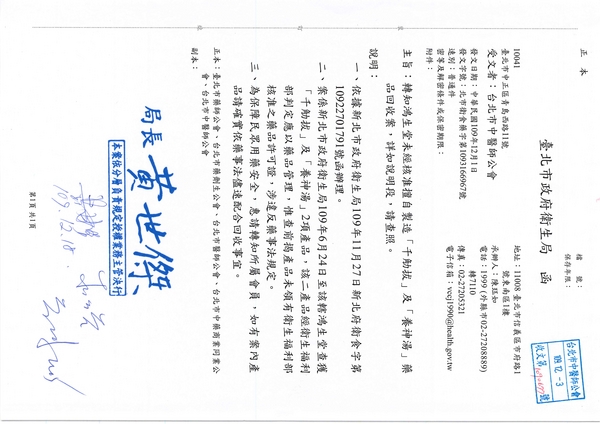 正本
檔 號：
保存年限：
臺北市政府衛生局 函
10041
臺北市中正區青島西路11號
地址：110008 臺北市信義區市府路1
號東南區1樓
承辦人：陳廷如
電話：1999 (外縣市02-27208889)
轉7110
傳真：02-27205321
電子信箱：vccj1990@health.gov.tw
台北市中醫師公會
109.12.-3
收文第
號
受文者：台北市中醫師公會
發文日期：中華民國109年12月1日
發文字號：北市衛食藥字第1093166967號
速別：普通件
密等及解密條件或保密期限：
附件：
主旨：轉知鴻生堂未經核准擅自製造「千勉拔」及「養神湯」藥
品回收案，詳如說明段，請查照。
說明：
一、依據新北市政府衛生局109年11月27日新北府衛食字第
1092270179​1號函辦理。
二、案係新北市政府衛生局109年6月24日至該轄鴻生堂查獲
「千勉拔」及「養神湯」2項產品，該二產品經衛生福利
部判定應以藥品管理，惟查前揭產品未領有衛生福利部
核准之藥品許可證，涉違反藥事法規定。
三、為保障民眾用藥安全，惠請轉知所屬會員，如有案內產
品請確實依藥事法儘速配合回收事宜。
正本：臺北市藥師公會、台北市藥劑生公會、台北市醫師公會、台北市中藥商業同業公
會、台北市中醫師公會
副本：
局長 黃世傑
本案依分層負責規定授權業務主管決行
109.12.18.
第1頁 共1頁